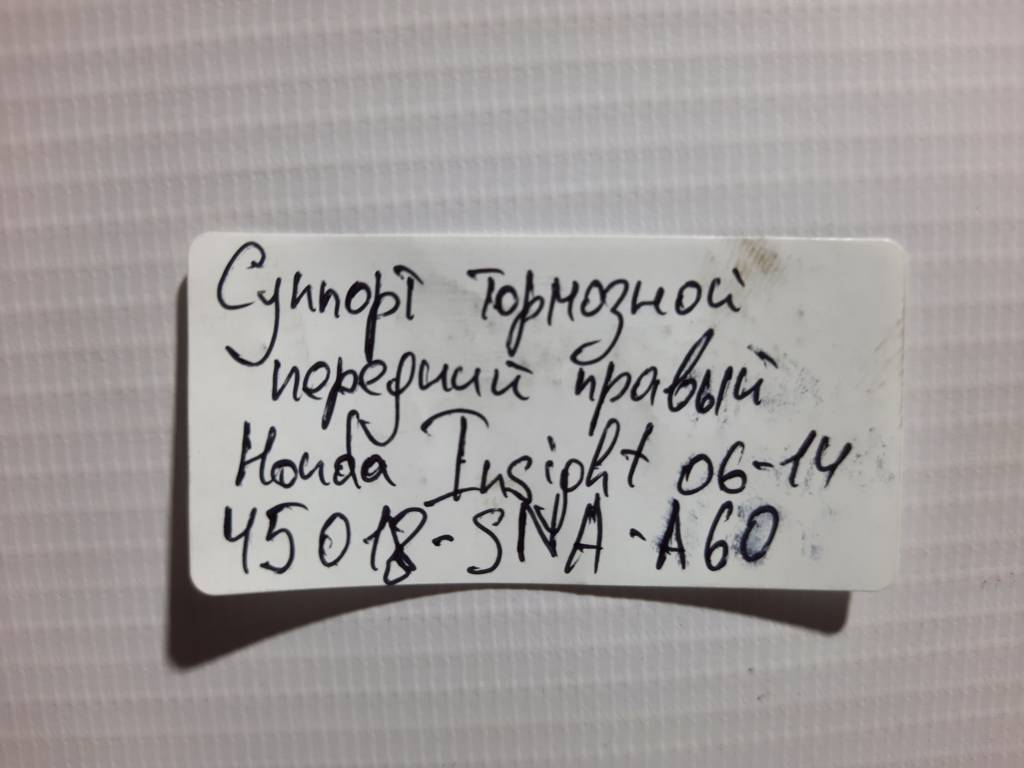 Суппорт тормозной
передний правый
Honda Insight 06-14
45018-SNA-A60